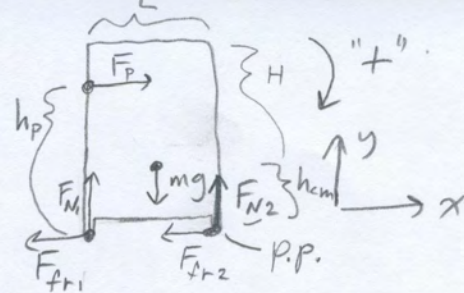 L
F_p
H
"+"
h_p
y
F_N1
mg
F_N2
h_cm
x
F_fr1
F_fr2
p.p.